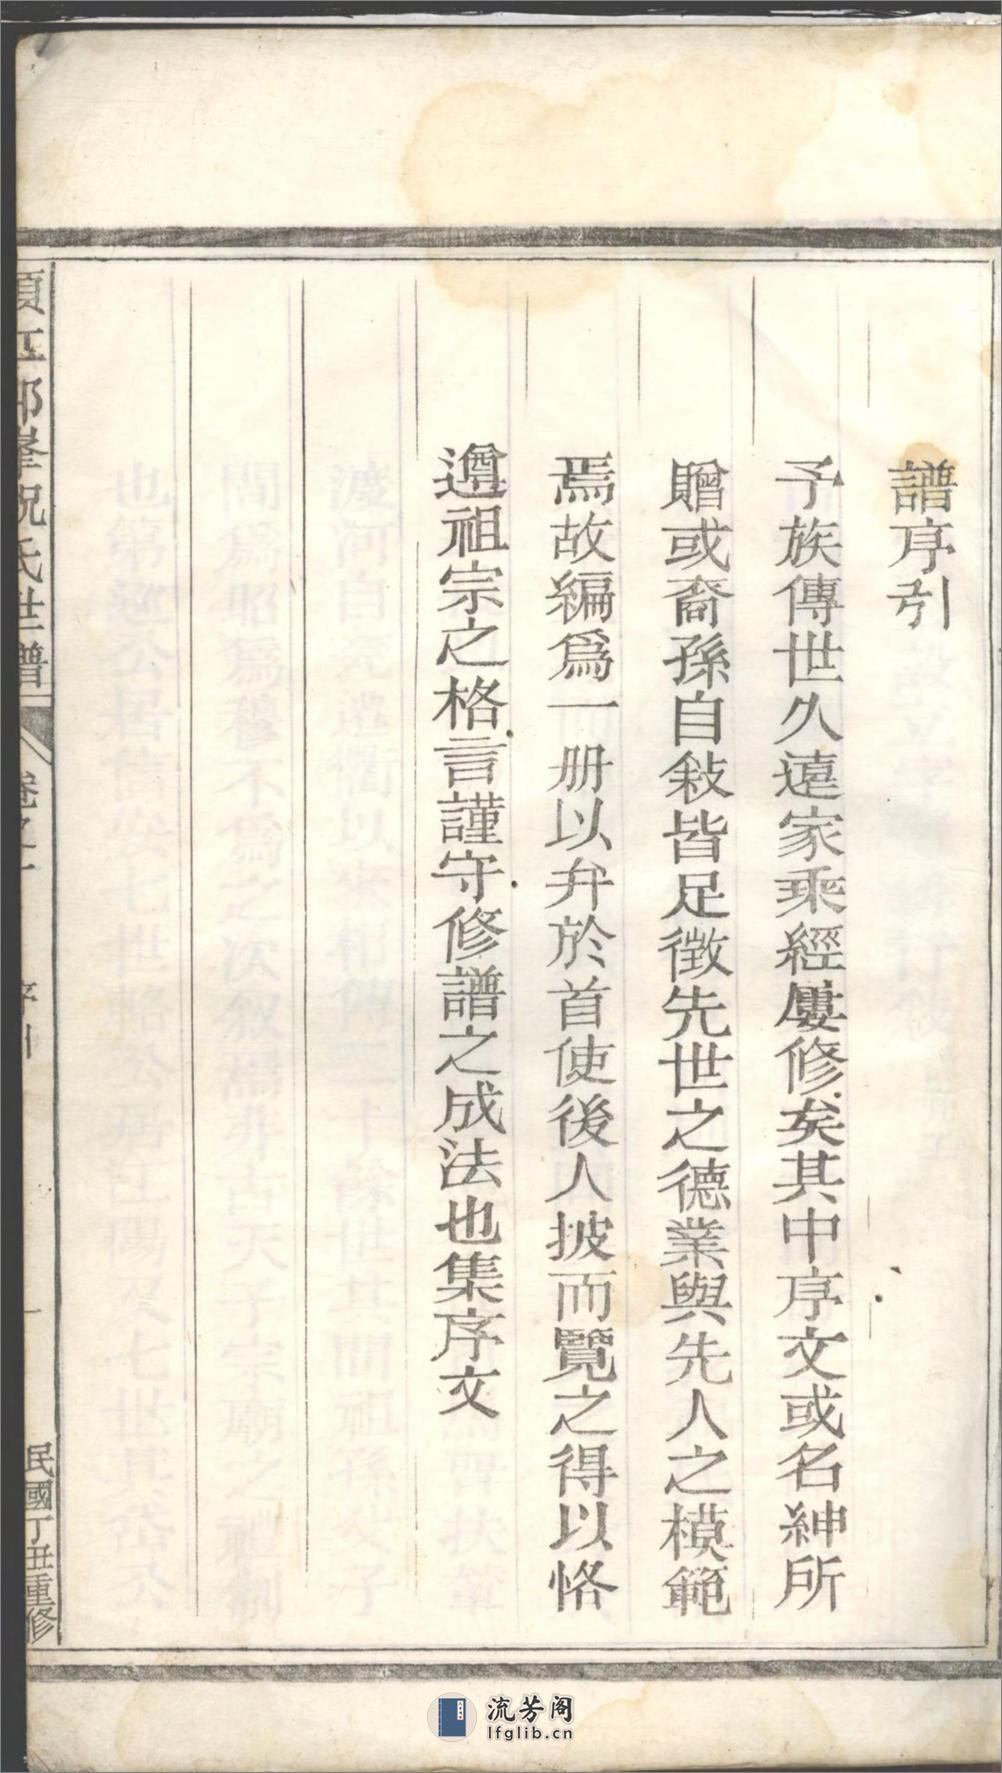 譜序引
予族傳世久遠家乘經屢修矣其中序文或名紳所
贈或裔孫自敍皆足徵先世之德業與先人之模範
焉故編爲一册以弁於首使後人披而覽之得以恪
遵祖宗之格言謹守修譜之成法也集序文
須江郎峯祝氏世譜
卷之一
序引
一
民國丁丑重修
流芳阁
lfglib.cn